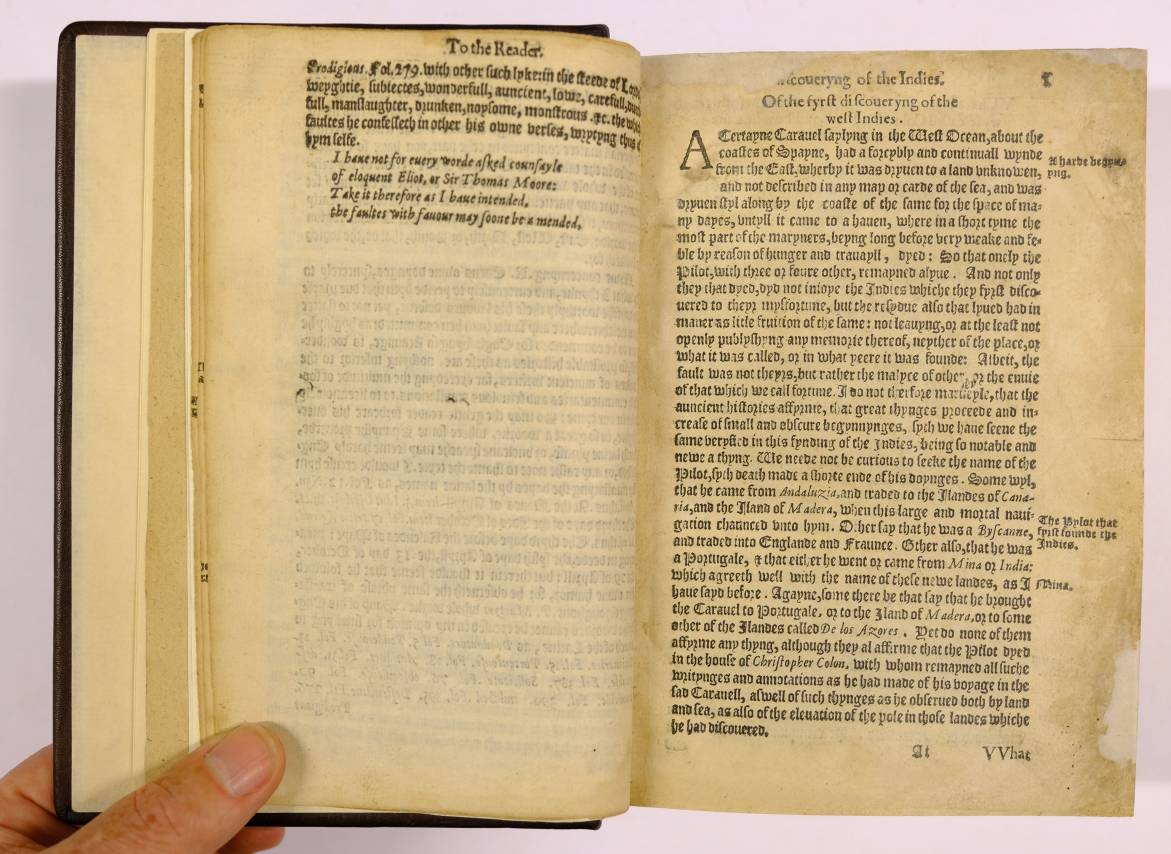 To the Reader.
Prodigious. Fol. 279. with other such lyke: in the steede of
weyghtie, subiectes, wonderfull, auncient, lowe, carefull,
full, manslaughter, drunken, noysome, monstrous. &c. the
faultes he confesseth in other his owne verses, wrytyng thus
hym selfe.
I haue not for euery worde asked counsayle
of eloquent Eliot, or Sir Thomas Moore:
Take it therefore as I haue intended,
the faultes with fauour may soone be a mended,
of the Indies.
Of the fyrst discoueryng of the
west Indies.
A Certayne Carauel saylyng in the West Ocean, about the
coastes of Spayne, had a forcybly and continuall wynde
from the East, wherby it was dryuen to a land vnknowen,
and not described in any map or carde of the sea, and was
dryuen styl along by the coaste of the same for the space of ma-
ny dayes, vntyll it came to a hauen, where in a short tyme the
most part of the maryners, beyng long before very weake and fe-
ble by reason of hunger and trauayll, dyed: So that onely the
Pilot, with three or foure other, remayned alyue. And not only
they that dyed, dyd not inioye the Indies whiche they fyrst disco-
uered to theyr mysfortune, but the resydue also that lyued had in
maner as litle fruition of the same: not leauyng, or at the least not
openly publyshyng any memorie thereof, neyther of the place, or
what it was called, or in what yeere it was founde: Albeit, the
fault was not theyrs, but rather the malyce of other, or the enuie
of that which we call fortune. I do not therfore marueyle, that the
auncient histories affyrme, that great thynges proceede and in-
crease of small and obscure begynnynges, syth we haue seene the
same verysied in this fyndyng of the Indies, being so notable and
newe a thyng. We neede not be curious to seeke the name of the
Pilot, syth death made a shorte ende of his doynges. Some wyl,
that he came from Andaluzia, and traded to the Ilandes of Cana-
ria, and the Iland of Madera, when this large and mortal naui-
gation chaunced vnto hym. Other say that he was a Byscanne,
and traded into Englande and Fraunce. Other also, that he was
a Portugale, & that either he went or came from Mina or India:
which agreeth well with the name of these newe landes, as I
haue sayd before. Agayne, some there be that say that he brought
the Carauel to Portugale, or to the Iland of Madera, or to some
other of the Ilandes called De los Azores. Yet do none of them
affyrme any thyng, although they al affirme that the Pilot dyed
in the house of Christopher Colon, with whom remayned all suche
writynges and annotations as he had made of his voyage in the
sad Carauell, aswell of such thynges as he obserued both by land
and sea, as also of the eleuation of the pole in those landes whiche
he had discouered.
VVhat
A harde begyn-
yng.
The Pylot that
fyrst founde the
Indies.
Mina.